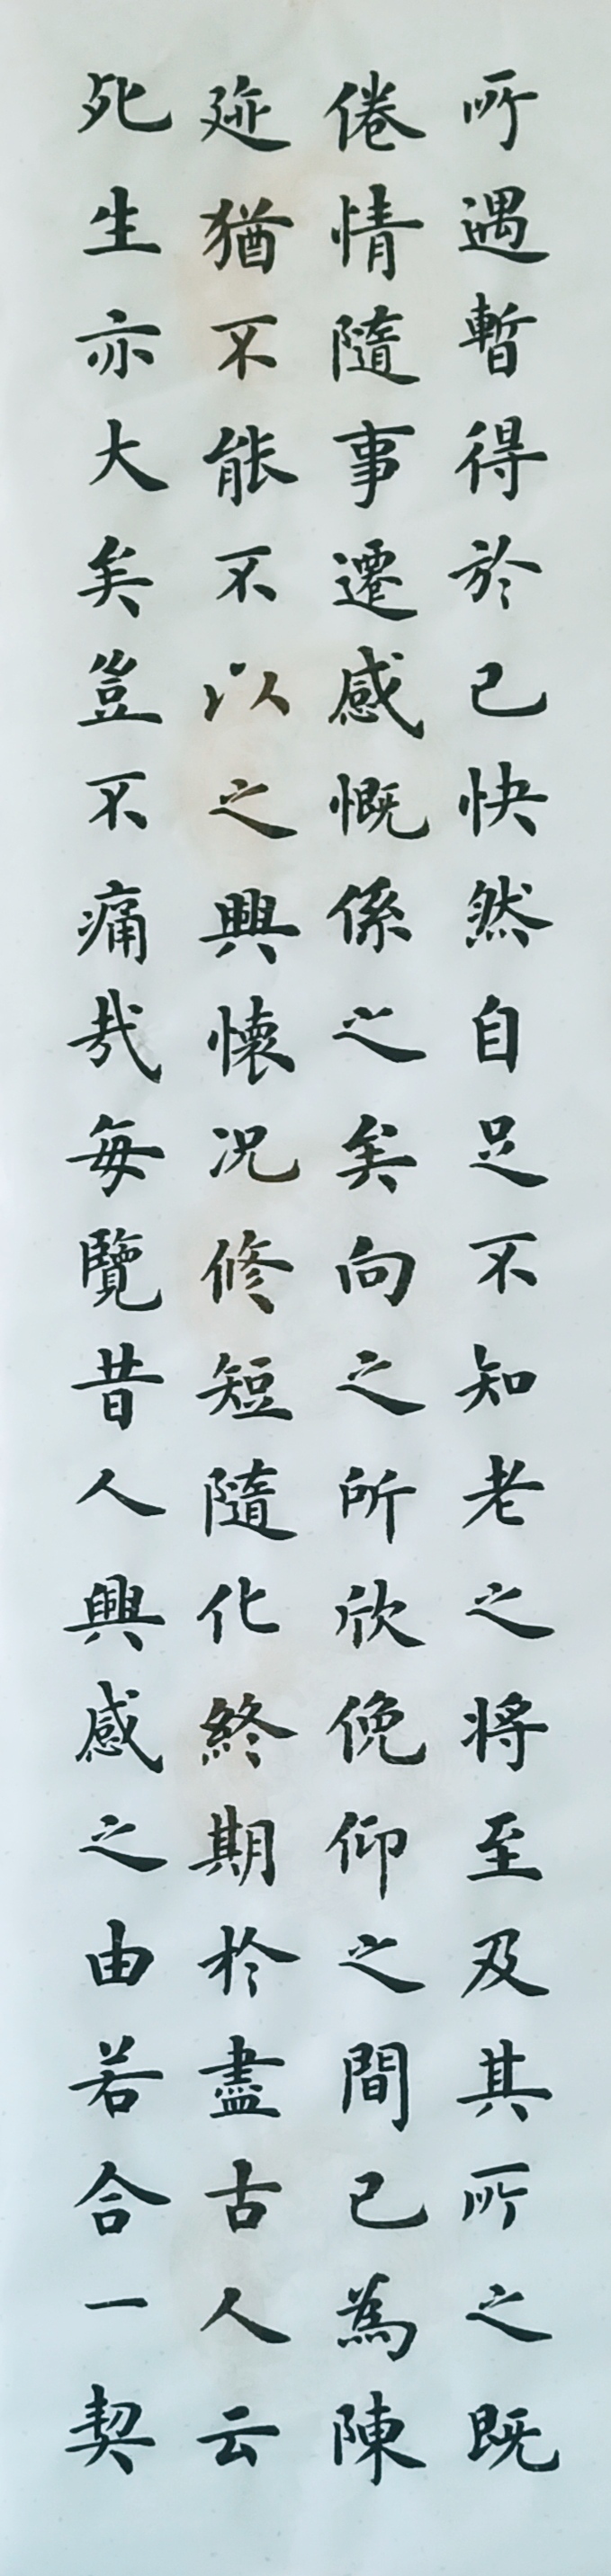 所遇暫得於己快然自足不知老之将至及其所之既
倦情隨事遷感慨係之矣向之所欣俛仰之間已為陳
迹猶不能不以之興懷况修短隨化終期於盡古人云
死生亦大矣豈不痛哉每覽昔人興感之由若合一契